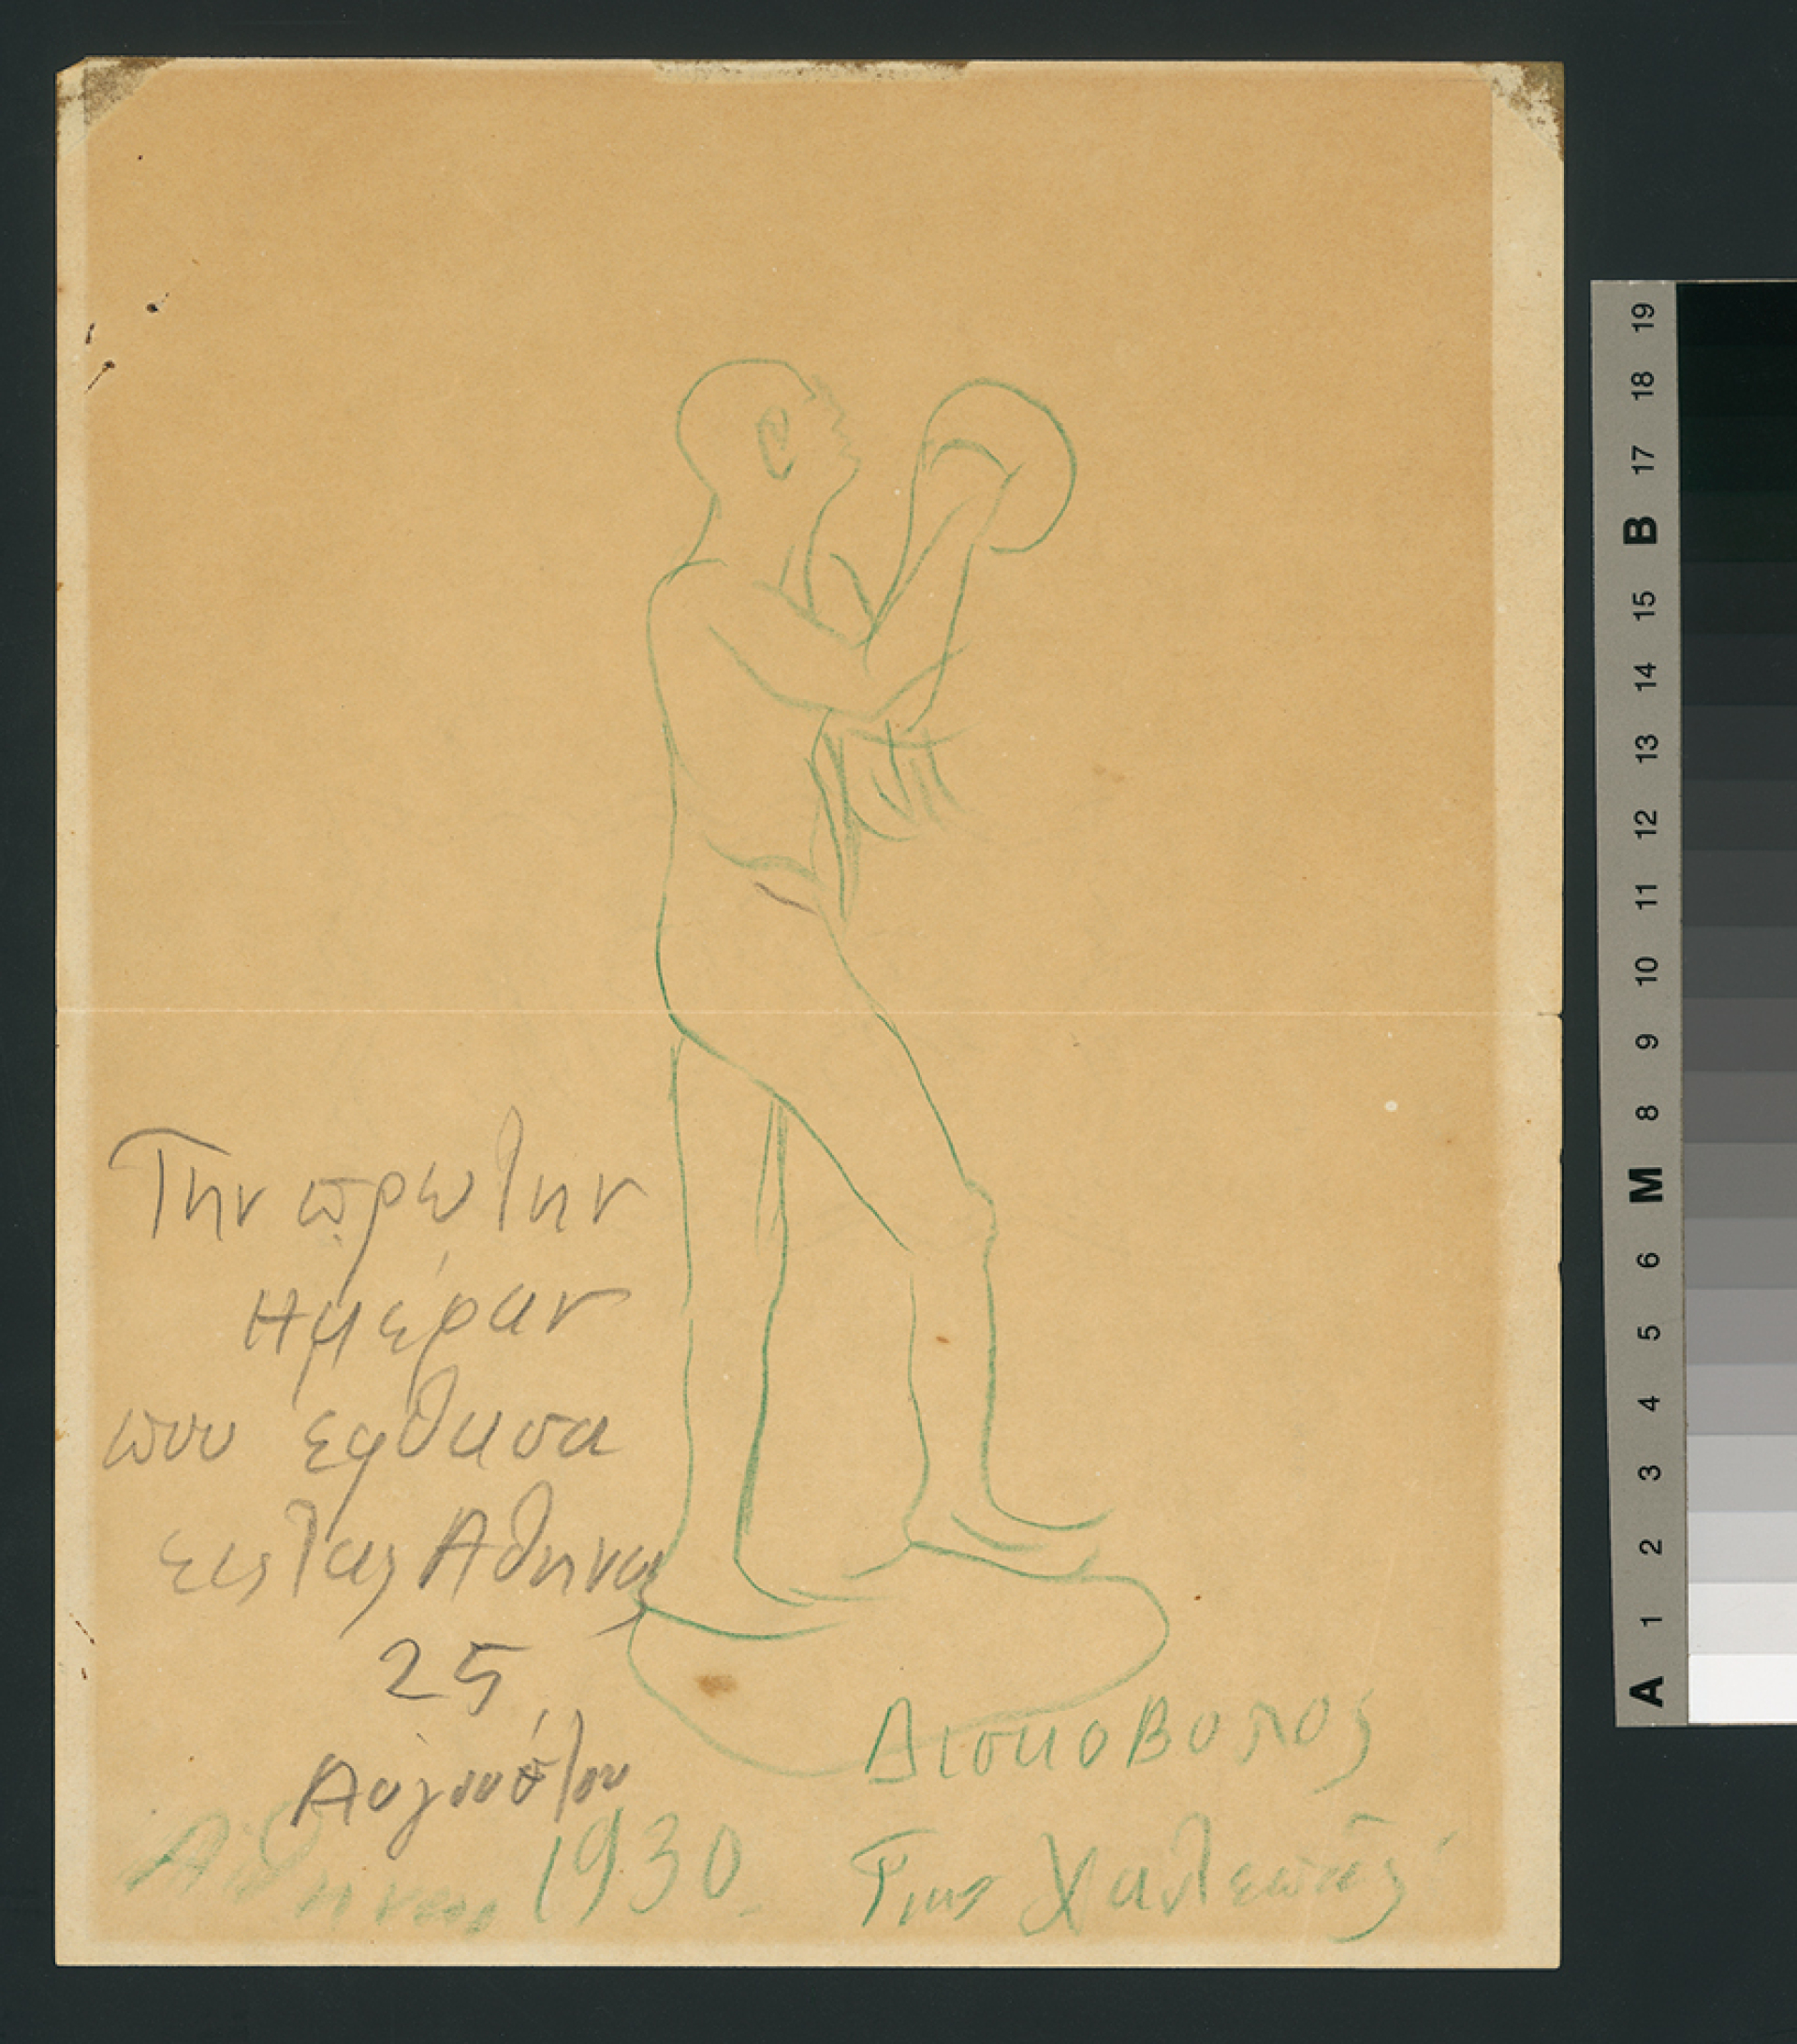 Την πρωτην
Ημέραν
που έφθασα
εις τας Αθηνας
25
Αυγούστου
Δισκοβολος
Αθηναι 1930. Γιαν Χαλεπᾶς
19
18
17
B
15
14
13
12
11
10
9
8
M
6
5
4
3
2
1
A